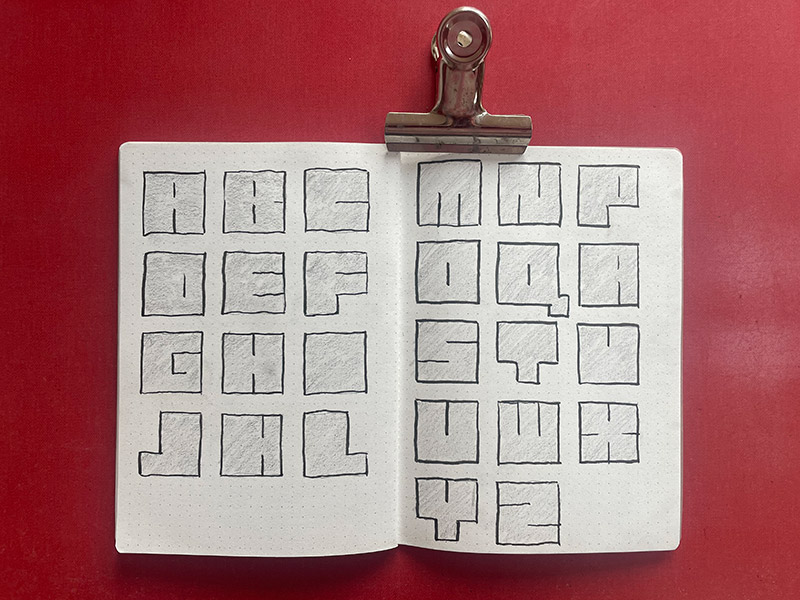 A B C
D E F
G H I
J K L
M N P
O Q R
S T U
V W X
Y Z